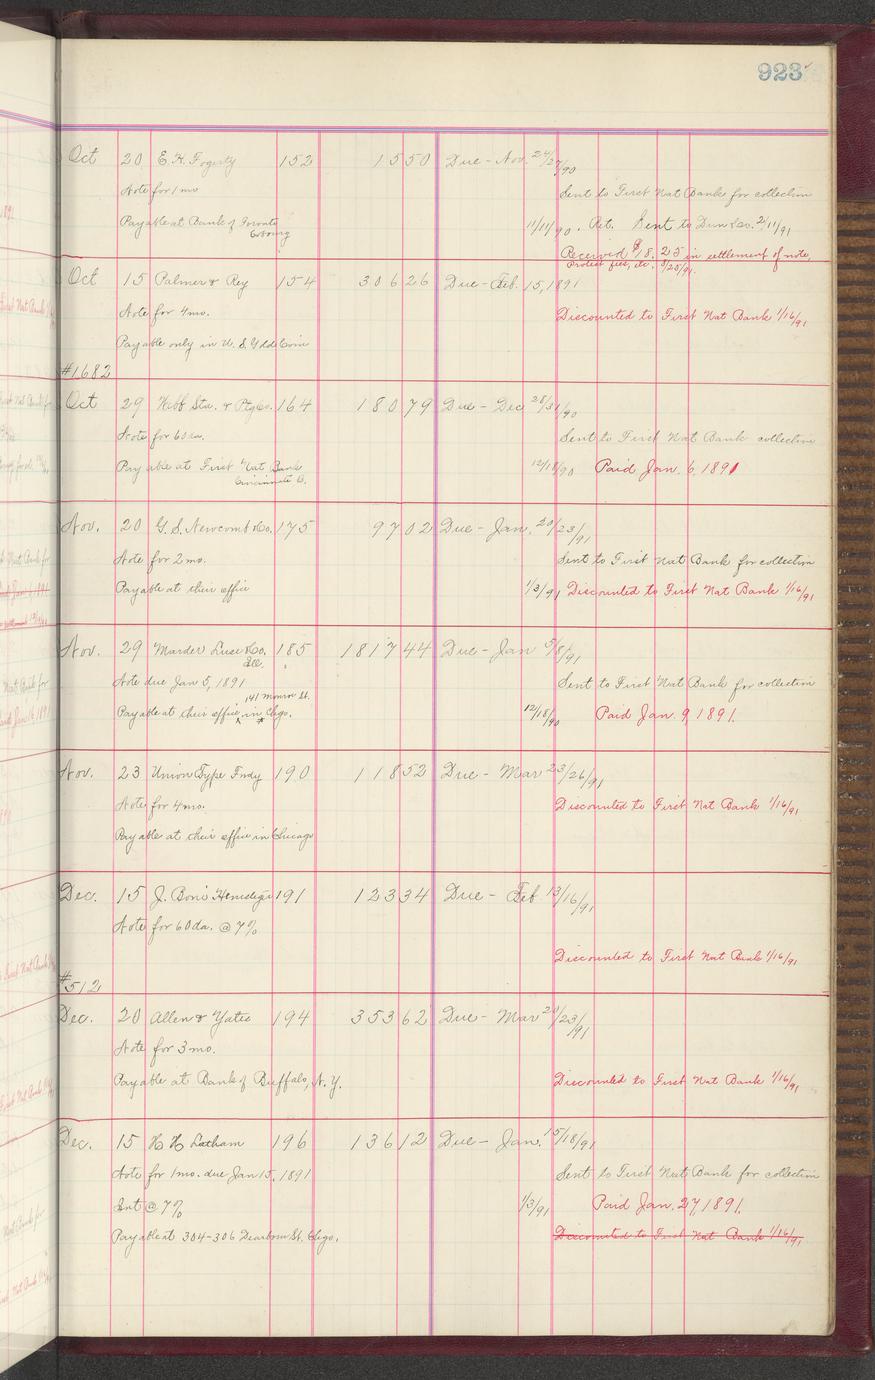 923
Oct 20 E. H. Fogerty 152 15 50 Due - Nov. 24/27/90
Note for 1 mo
Sent to First Nat Bank for collection
Payable at Bank of Toronto
Cobourg
11/11/90. Ret. Sent to Dun & Co. 2/11/91
Received $18.25 in settlement of note,
Protest fees, etc. 3/28/91.
Oct 15 Palmer & Rey 154 306 26 Due - Feb. 15, 1891
Note for 4 mo.
Discounted to First Nat Bank 1/16/91
Payable only in U. S. Gold Coin
#1682
Oct 29 Webb Sta. & Ptg Co. 164 180 79 Due - Dec 28/31/90
Note for 60 da.
Sent to First Nat Bank collection
Payable at First Nat Bank
Cincinnati O.
12/18/90 Paid Jan. 6, 1891
Nov. 20 G. S. Newcomb & Co. 175 97 02 Due - Jan. 20/23/91
Note for 2 mo.
Sent to First Nat Bank for collection
Payable at their office
1/3/91 Discounted to First Nat Bank 1/16/91
Nov. 29 Marder Luse & Co. 185 1817 44 Due - Jan 5/8/91
Ill.
Note due Jan 5, 1891
Sent to First Nat Bank for collection
141 Monroe St.
Payable at their office ^ in Chgo.
12/18/90 Paid Jan. 9, 1891.
Nov. 23 Union Type Fndy 190 118 52 Due - Mar 23/26/91
Note for 4 mo.
Discounted to First Nat Bank 1/16/91
Payable at their office in Chicago
Dec. 15 J. Boni 191 123 34 Due - Feb 13/16/91
Note for 60 da. @ 7%
Discounted to First Nat Bank 1/16/91
#512
Dec. 20 Allen & Yates 194 353 62 Due - Mar 20/23/91
Note for 3 mo.
Payable at Bank of Buffalo, N. Y.
Discounted to First Nat Bank 1/16/91
Dec. 15 H H Latham 196 136 12 Due - Jan. 15/18/91
Note for 1 mo. due Jan 15, 1891
Sent to First Nat Bank for collection
Int @ 7%
1/3/91 Paid Jan. 27, 1891.
Payable at 304-306 Dearborn St. Chgo.
Discounted to First Nat Bank 1/16/91